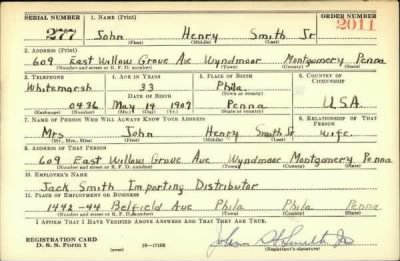 SERIAL NUMBER 1. NAME (Print) ORDER NUMBER
277 John Henry Smith Jr 2011
(First) (Middle) (Last)
2. ADDRESS (Print)
609 East Willow Grove Ave Wyndmoor Montgomery Penna
(Number and street or R. F. D. number) (Town) (County) (State)
3. TELEPHONE 4. AGE IN YEARS 5. PLACE OF BIRTH 6. COUNTRY OF CITIZENSHIP
Whitemarsh 33 Phila.
DATE OF BIRTH (Town or county)
0436 May 14 1907 Penna USA.
(Exchange) (Number) (Mo.) (Day) (Yr.) (State or country)
7. NAME OF PERSON WHO WILL ALWAYS KNOW YOUR ADDRESS 8. RELATIONSHIP OF THAT PERSON
Mrs John Henry Smith Jr wife.
(Mr., Mrs., Miss) (First) (Middle) (Last)
9. ADDRESS OF THAT PERSON
609 East Willow Grove Ave Wyndmoor Montgomery Penna
(Number and street or R. F. D. number) (Town) (County) (State)
10. EMPLOYER'S NAME
Jack Smith Importing Distributor
11. PLACE OF EMPLOYMENT OR BUSINESS
1442-44 Belfield Ave Phila Phila Penna
(Number and street or R. F. D. number) (Town) (County) (State)
I AFFIRM THAT I HAVE VERIFIED ABOVE ANSWERS AND THAT THEY ARE TRUE.
REGISTRATION CARD John H Smith Jr
D. S. S. Form 1 (over) 16-17105 (Registrant's signature)